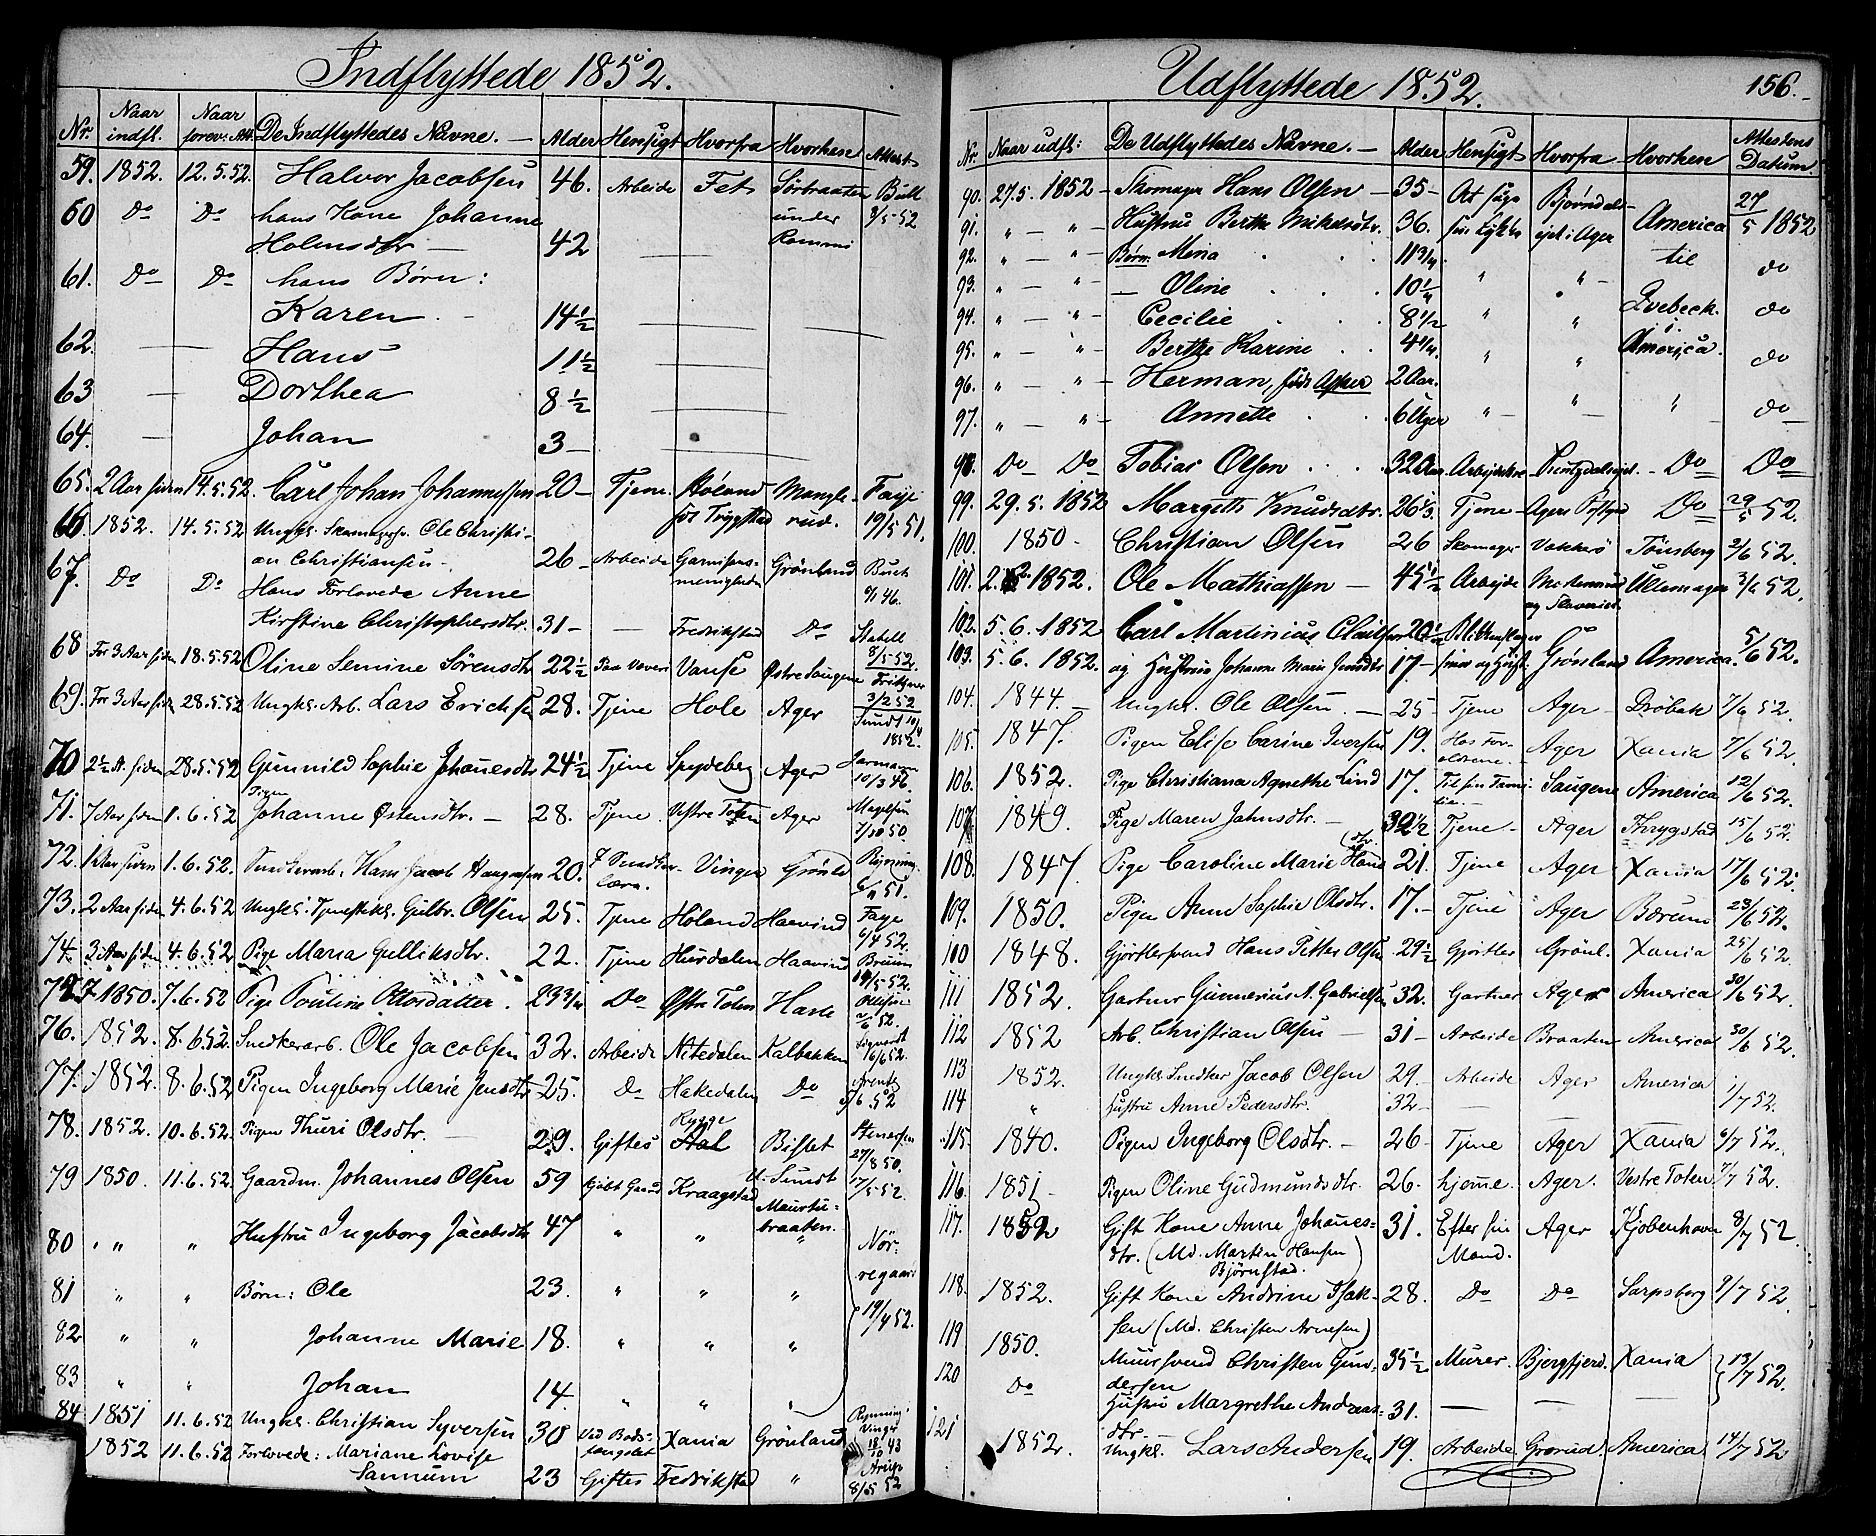 Indflyttede 1852.
Nr. Naar indfl. Naar forev. Att. De Indflyttedes Navne. Alder Hensigt Hvorfra Hvorhen Attest
59. 1852. 12.5.52. Halvor Jacobsen 46. Arbeide Fet Sörbraaten Bull
60 Do Do hans Kone Johanne under 9/5-52
Holmsdtr — 42 Rommi
61. Do Do hans Børn:
Karen — 14½
62. — — Hans 11½
63 — Dorthea 8½
64. — Johan 3 —
65. 2 Aar siden 14.5.52. Carl Johan Johannessen 20 — Tjene. Høland Mangle- Faye
før Trygstad rud. 19/5 51.
66 1852. 14.5.52 Ungkl. Skomagersv. Ole Christi-
an Christiansen — 26 — Arbeide Garnisons- Grönland Buch
menigheden 9/1 46.
67. Do Do Hans Forlovede Anne
Kirstine Christophersdtr. 31 — — Fredrikstad Do Stabell
68 For 3 Aar siden 18.5.52 Oline Semine Sörensdtr 22½ Paa Væveri Vanse Østre Saugene 8/5-52.
69. For 3 Aar siden 28.5.52 Ungkl. Arb. Lars Ericksen 28. Tjene Hole Ager 3/2 52
1852.
70 2½ A. siden 28.5.52 Gunnild Sophie Johanesdtr 24½ Tjene Spydeberg Ager 10/3 46.
71. 7 Aar siden 1.6.52 Pigen Johanne Østensdtr. — 28. Tjene Vestre Toten Ager 7/10 50.
72. 1 Aar siden 1.6.52. Snedkersv. Hans Jacob Haagensen 20. I Snedker- Vinger Grönld Rynning
læra. 51.
73. 2 Aar siden 4.6.52 Ungkl. Tjenestekl. Gulbr. Olsen 25. Tjene Höland Haavind Faye
6/4 52.
74. 3 Aar siden 4.6.52 Pige Maria Gulliksdtr. 22. Tjene Hurdalen Haavind Bruun
/5-52.
75 1850. 7.6.52 Pige Pouline Ottosdatter. 23¾ Do Østre Toten Hasle
/6 52.
76. 1852. 8.6.52. Snedkerarb. Ole Jacobsen 32. Arbeide Nitedalen Kalbakken
/6 52.
77. 1852. 8.6.52 Pigen Ingeborg Marie Jensdtr 25. Do Hakedalen Do
/6 52
78. 1852. 10.6.52. Pigen Thuri Olsdtr. — 29. Giftes Rygge Bislet Stenersen
27/8 50.
79 1850. 11.6.52. Gaardm. Johannes Olsen 59 kjöbt Gaard Kraagstad U. Sundt 17/5-52.
80 " " Hustru Ingeborg Jacobsdtr 47 " " braaten. Nör-
regaard
81 " " Børn: Ole 23. " " " 19/4 52.
82 " " Johanne Marie 18. " " "
83 " " Johan 14. " " "
84 1851 11.6.52 Ungkl. Christian Syversen 30 Ved Bods- Xania Grönland Rynning
fængslet Vinger 18/10 43
1852 11.6.52 Forlovede: Mariane Lovise
Sannum 23 Giftes Fredrikstad " 8/5 52
Udflyttede 1852. 156.
Nr. Naar udfl: De Udflyttedes Navne. — Alder Hensigt Hvorfra Hvorhen Attestens Datum.
90. 27.5.1852 — Skomager Hans Olsen — 35 — At søge Bjørndals- America 27/5 1852
91. " — " — Hustru Berthe Mikkelsdtr. 36. sin Lykke eiet i Ager
92. " — " — Børn: Mina 11¾. til do
93. " — " — Oline 10¼ " " —
94. " — " — Cecilie 8½ " " Qvebeck. do
95. " " — Berthe Karine 4¼. " " i America. do
96. " — " — Herman, født Asker 2 Aar.
97. " " — Annette 6 Uger " — " — " do
98. Do Do Tobias Olsen 32 Aar. Do Do
99. 29.5.1852 Margeth Knudsdtr. 26⅓. Tjene — Agers Do 29/5 52.
100. 1850 — Christian Olsen 26 Skomager Vækkerö Tønsberg 2/6 52.
101. 2.6.1852. Ole Mathiassen — 45½ Arbejde Ullensager 3/6 52.
102. 5.6.1852 Carl Martinius 20½ Blikkenslager
103. 5.6.1852. og Hustru Johanne Marie 17 — Grönland America. 5/6 52.
104. 1844. — Ungkl. Ole Olsen. — 25 — Tjene Ager — Dröbak 7/6 52.
105. 1847. Pigen Elise Carine Iversen 19. Hos For-
ældrene. — Ager Xania 7/6 52
106. 1852. Pige Christiana Agnethe Lind 17. Til sin Fami-
lie. — Saugene America 12/6 52.
107 1849. Pige Maren Jahnsdtr. — 30½ Tjene — Ager Thrygstad 15/6 52.
108. 1847. Pige Caroline Marie Hansdtr. 21. Tjene Ager Xania 17/6 52.
109. 1850. Pigen Anne Sophie Olsdtr. 17. — Tjene Ager Bærum 23/6 52.
100 1848. Gjörtlersvend Hans Petter Olsen 29½ Gjörtler Grönl. Xania 25/6 52.
111 1852. Gartner Gunnerius A. Gabrielsen 32. Gartner Ager America 30/6 52.
112 1852 Arb. Christian Olsen — 31 — Arbeide Braaten America 30/6 52.
113 1852. Ungkl. Snedker Jacob Olsen 29. Arbeide Ager America 1/7 52.
114 " Hustru Anne Pedersdtr. 32 — —
115 1840. Pigen Ingeborg Olsdtr. — 26 — Tjene Ager Xania 6/7 52.
116. 1851 — Pigen Oline Gudmundsdtr. 26. hjeme. Ager. Vestre Toten 7/7 52.
117. 1852 Gift Kone Anne Johanes- 31. Efter sin Ager Kjøbenhavn 8/7 52.
dtr. (Md. Martin Hansen Mand.
Björnstad.)
118. 1852. Gift Kone Andrine Isak- 28. Do Do Sarpsborg 9/7 52.
sen (Md. Christen Arnesen)
119 1850. Muursvend Christen Gun- 35½ Murer. Bjergfjerd. Xania 13/7 52.
dersen
120 Do Hustru Margrethe Andreas- 31. — — —
dtr. —
121 1852. Ungkl. Lars Andersen 19. Arbeide Grorud America 14/7 52